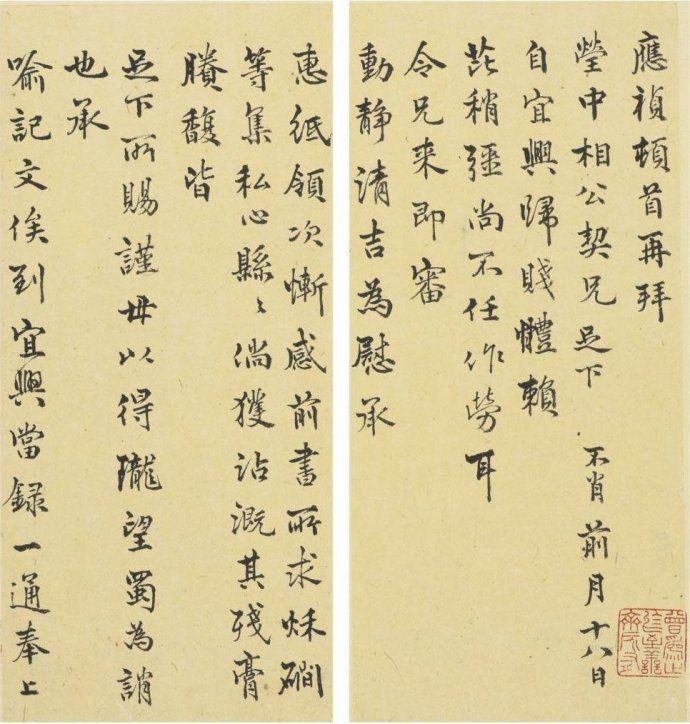 應禎頓首再拜
瑩中相公契兄足下 不肖前月十八日
自宜興歸賤體賴
芘稍彊尚不任作勞耳
令兄来即審
動靜清吉為慰承
惠紙領次慚感前書所求秌碉
等集私心縣〻倘獲沾溉其殘膏
賸馥皆
足下所賜謹毋以得隴望蜀為誚
也承
喻記文俟到宜興當録一通奉上